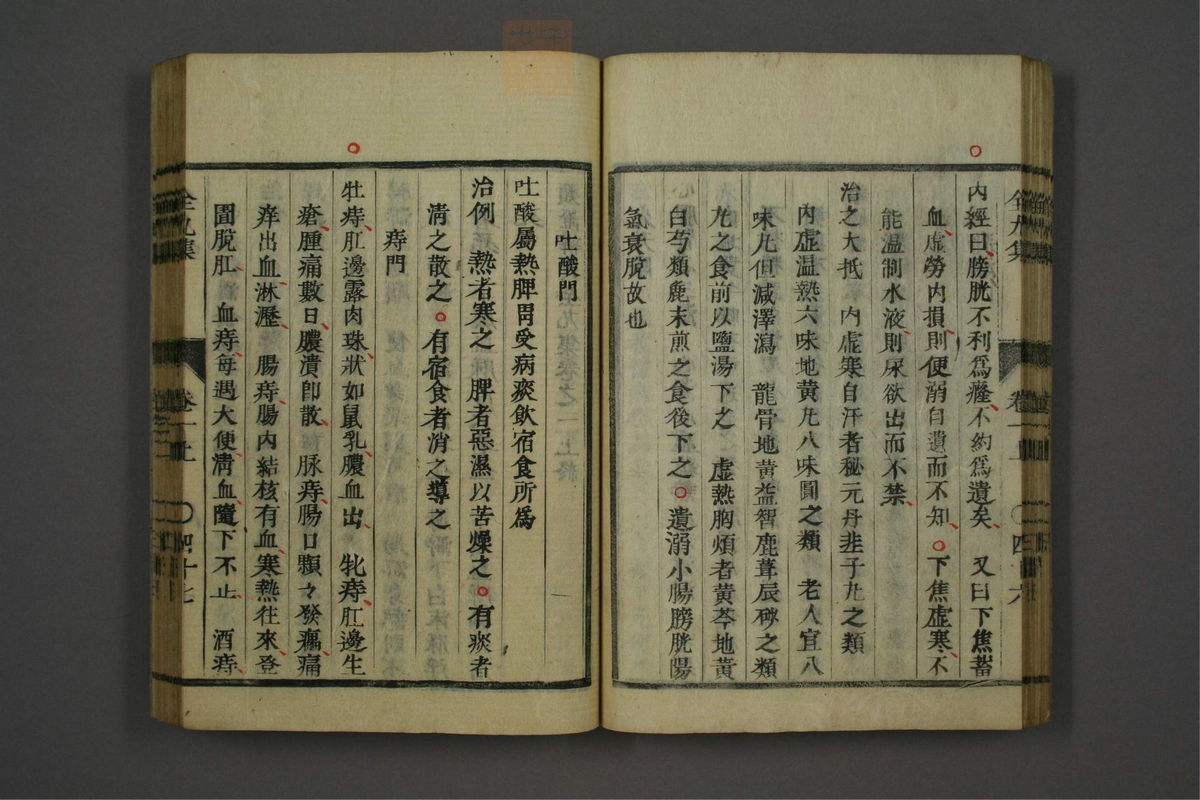 內經曰膀胱不利爲癃不約爲遺矣　又曰下焦蓄
血虛勞內損則便溺自遺而不知○下焦虛寒不
能溫制水液則尿欲出而不禁
治之大抵　內虛寒自汗者秘元丹韭子九之類
內虛温熱六味地黄九八味圓之類　老人宜八
味九但減澤瀉　龍骨地黄益智鹿茸辰砂之類
九之食前以鹽湯下之　虛熱胸煩者黄芩地黄
白芍類麁末煎之食後下之○遺溺小腸膀胱陽
氣衰脫故也
全九集　卷二上　○四十六
吐酸門
吐酸屬熱脾胃受病痰飲宿食所爲
治例　熱者寒之　脾者惡濕以苦燥之○有痰者
淸之散之○有宿食者消之導之
痔門
牡痔肛邊露肉珠狀如鼠乳膿血出　牝痔肛邊生
瘡腫痛數日膿潰卽散　脉痔腸口顆々發瘺痛
痒出血淋瀝　腸痔腸內結核有血寒熱往來登
圊脫肛　血痔每遇大便淸血隨下不止　酒痔
全九集　卷二上　○四十七